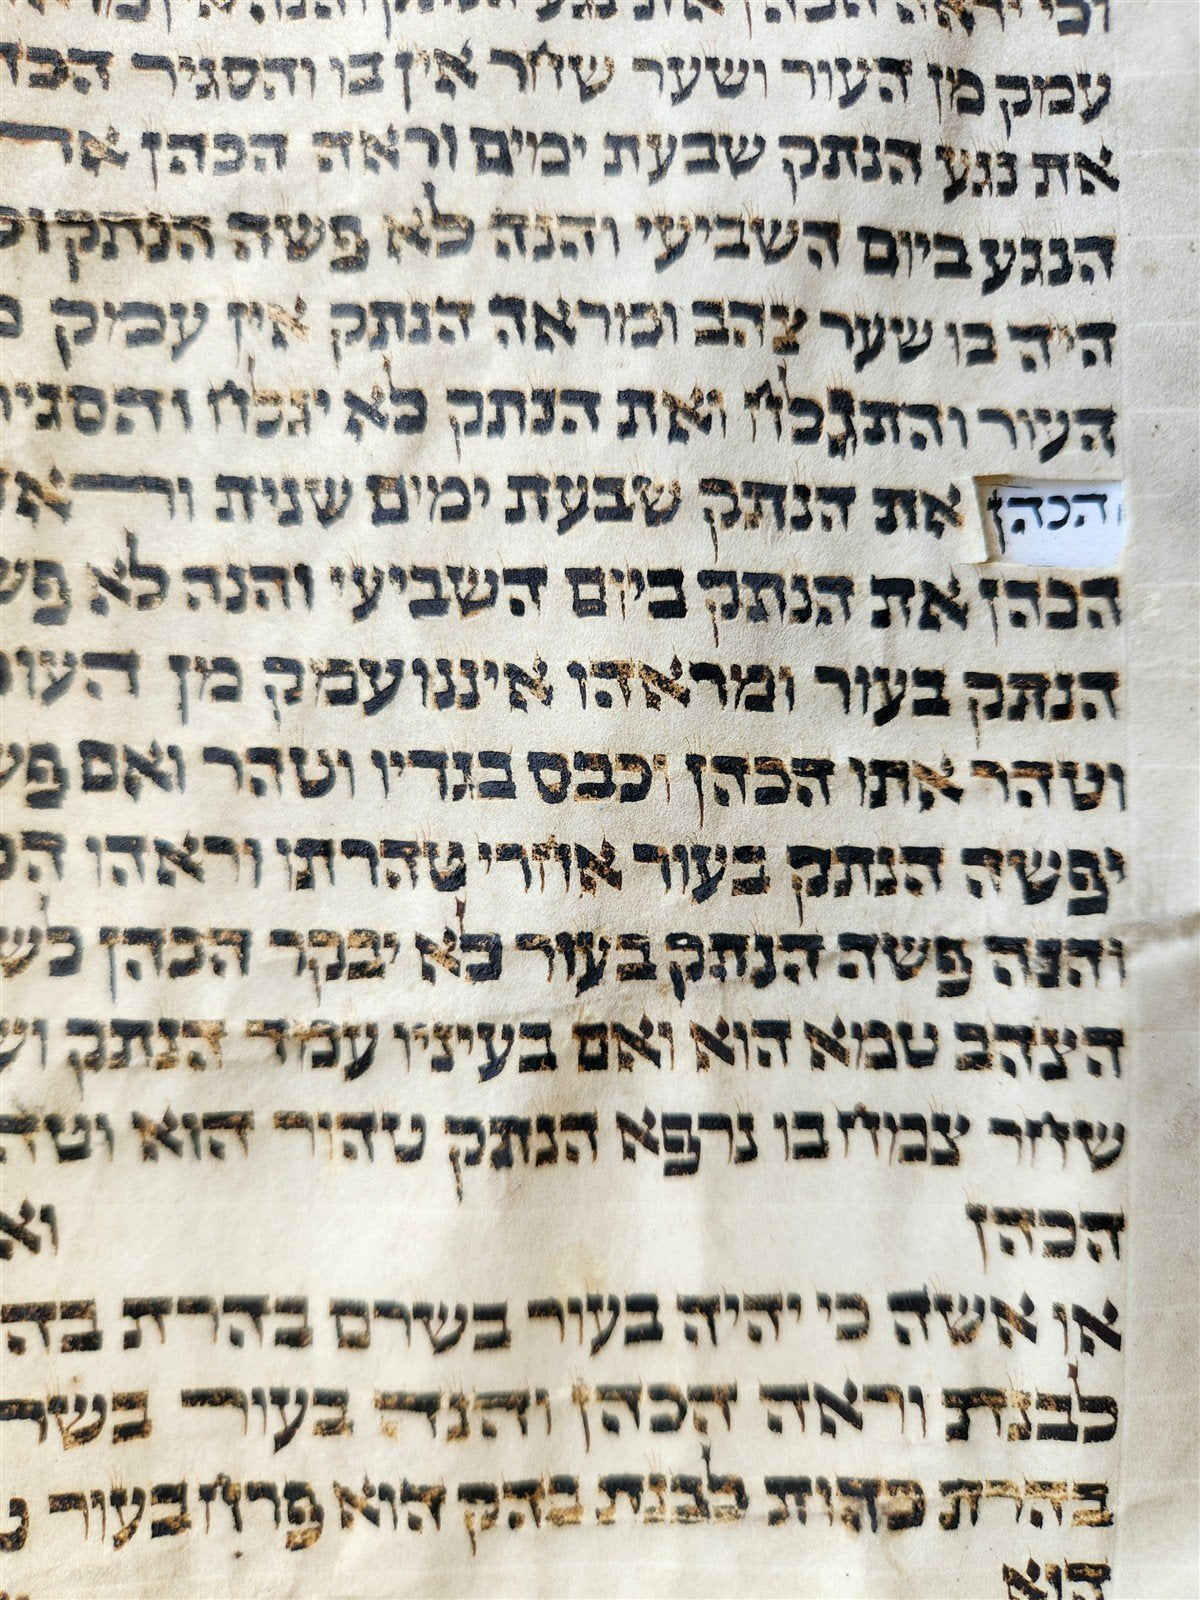 וכי יראה הכהן את נגע הנתק והנה אין מראהו
עמק מן העור ושער שחר אין בו והסגיר
את נגע הנתק שבעת ימים וראה הכהן את
הנגע ביום השביעי והנה לא פשה הנתק
היה בו שער צהב ומראה הנתק אין עמק
העור והתגלח ואת הנתק לא יגלח והסגיר
הכהן את הנתק שבעת ימים שנית וראה
הכהן את הנתק ביום השביעי והנה לא
הנתק בעור ומראהו איננו עמק מן העור
וטהר אתו הכהן וכבס בגדיו וטהר ואם
יפשה הנתק בעור אחרי טהרתו וראהו
והנה פשה הנתק בעור לא יבקר הכהן
הצהב טמא הוא ואם בעיניו עמד הנתק
שחר צמח בו נרפא הנתק טהור הוא
הכהן
או אשה כי יהיה בעור בשרם בהרת
לבנת וראה הכהן והנה בעור
בהרת כהות לבנת בהק הוא פרח בעור
הוא